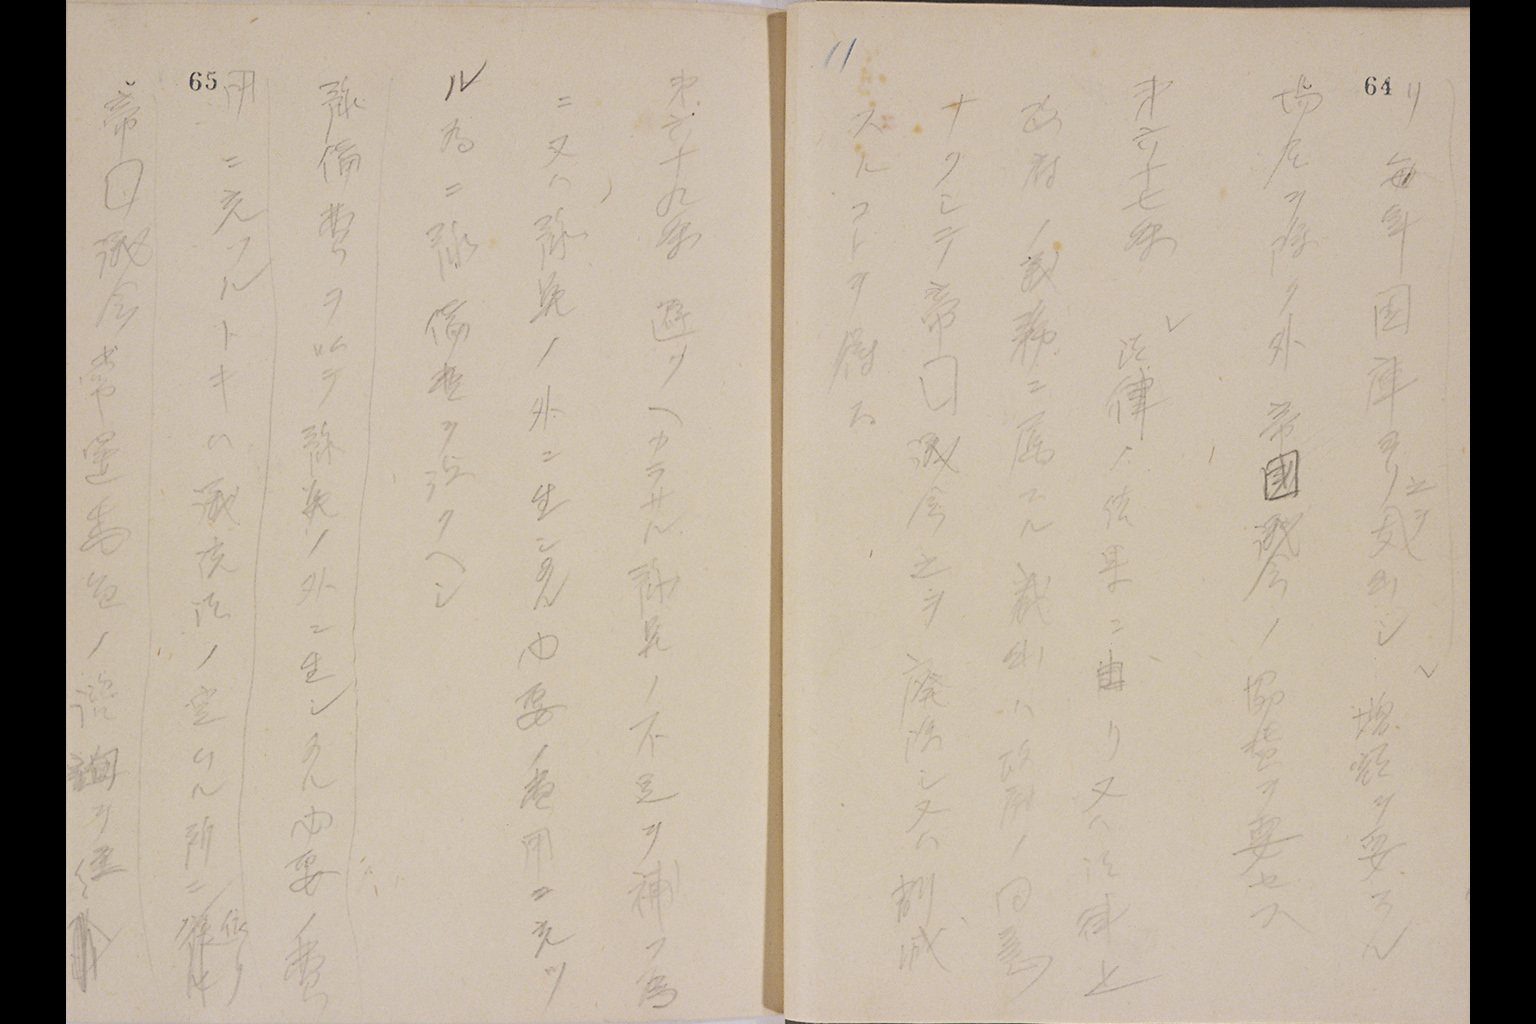 64
リ毎年国庫ヨリ之ヲ支出シ増額ヲ要スル
場合ヲ除ク外帝國議会ノ協賛ヲ要セス
第六十七条 法律ノ結果ニ由リ又ハ法律上
政府ノ義務ニ属スル歳出ハ政府ノ同意
ナクシテ帝国議会之ヲ廃除シ又ハ削減
スルコトヲ得ス
11
第六十九条 避クヘカラサル豫算ノ不足ヲ補フ為
ニ又ハ豫算ノ外ニ生シタル必要ノ費用ニ充ツ
ル為ニ豫備費ヲ設クヘシ
豫備費ヲ以テ豫算ノ外ニ生シタル必要ノ費
用ニ充ツルトキハ議院法ノ定ムル所ニ依リ
65
帝国議会常置委員ノ諮詢ヲ経